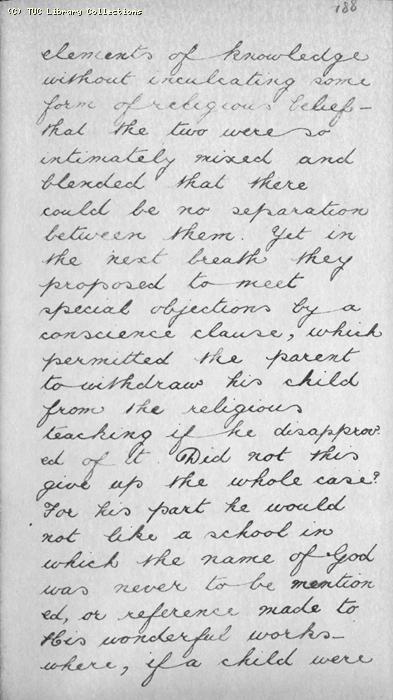 (C) TUC Library Collections
188
elements of knowledge
without inculcating some
form of religious belief—
that the two were so
intimately mixed and
blended that there
could be no separation
between them. Yet in
the next breath they
proposed to meet
special objections by a
conscience clause, which
permitted the parent
to withdraw his child
from the religious
teaching if he disapprov-
ed of it. Did not this
give up the whole case?
For his part he would
not like a school in
which the name of God
was never to be mention
ed, or reference made to
His wonderful works—
where, if a child were